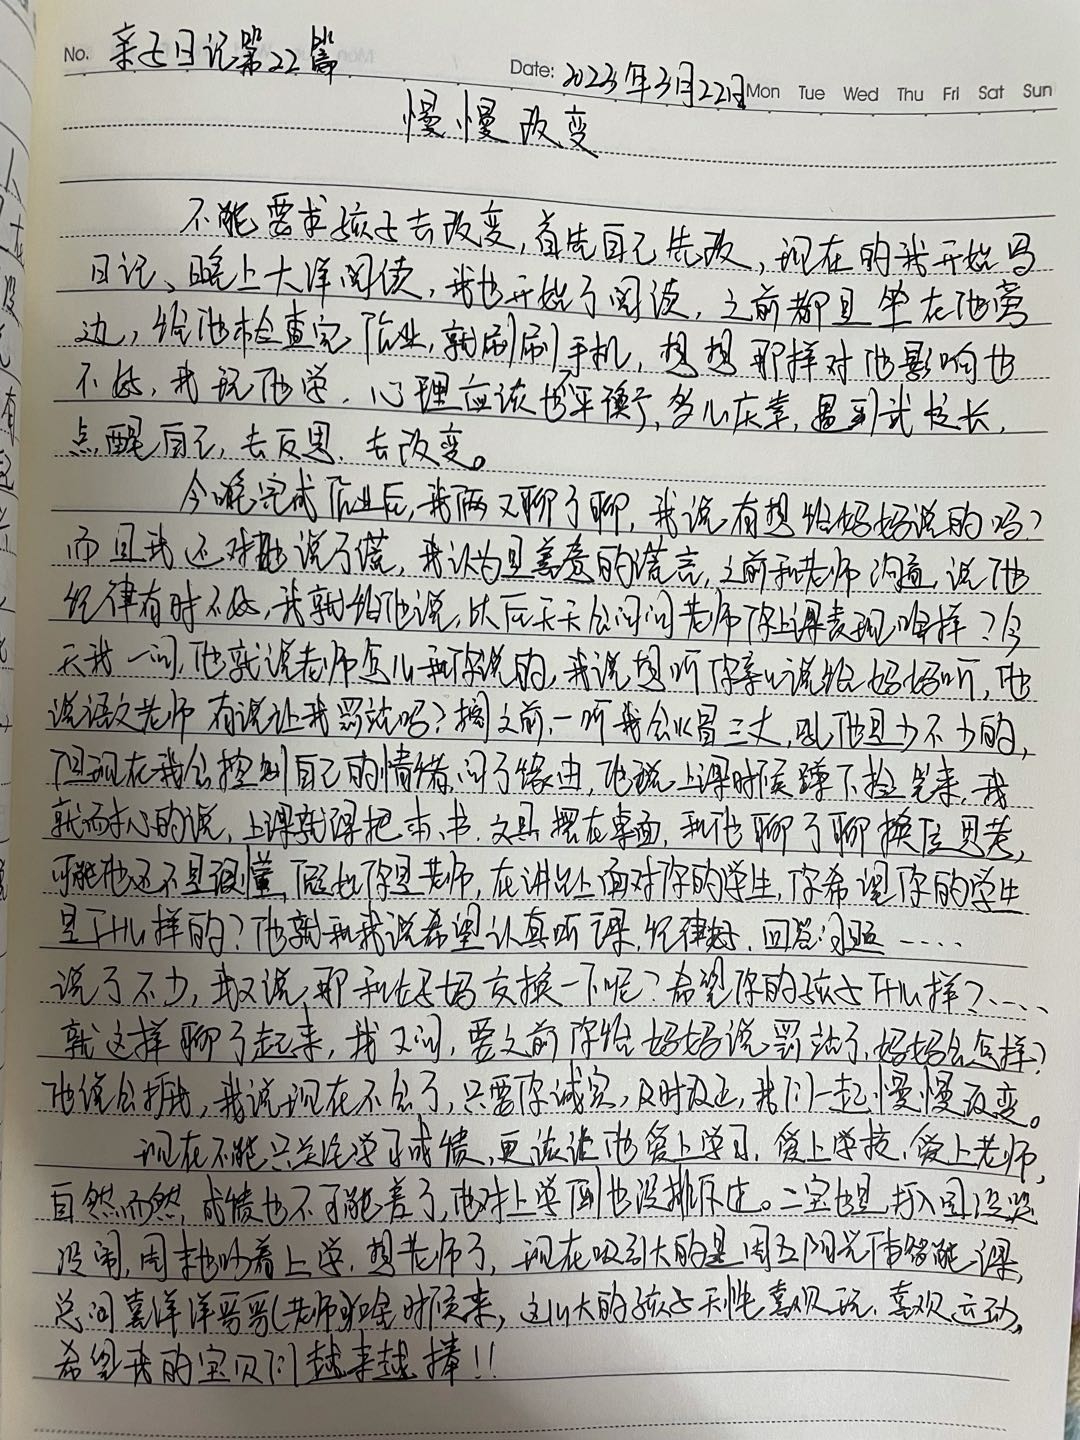 No. 亲子日记第22篇
Date: 2023年3月22日 Mon Tue Wed Thu Fri Sat Sun
慢慢改变
不能要求孩子去改变,首先自己先改,现在的我开始写
日记、晚上大洋阅读,我也开始了阅读,之前都是坐在他旁
边,给他检查完作业,就刷刷手机,想想那样对他影响也
不好,我玩他学,心理应该也不平衡,多么庆幸,遇到武校长,
点醒自己,去反思、去改变。
今晚完成作业后,我俩又聊了聊,我说有想给妈妈说的吗?
而且我还对他说了谎,我认为是善意的谎言,之前和老师沟通,说他
纪律有时不好,我就给他说,以后天天会问问老师你上课表现咋样?今
天我一问,他就说老师怎么和你说的,我说想听你亲口说给妈妈听,他
说语文老师有说让我罚站吗?搁之前,一听我会火冒三丈,吼他是少不少的,
但现在我会控制自己的情绪,问了缘由,他说上课时候蹲下捡笔来,我
就耐心的说,上课就得把本、书、文具摆在桌面,和他聊了聊换位思考,
可能他还不是很懂,假如你是老师,在讲台上面对你的学生,你希望你的学生
是什么样的?他就和我说希望认真听课,纪律好,回答问题……
说了不少,我又说,那和妈妈交换一下呢?希望你的孩子什么样?……
就这样聊了起来,我又问,要之前你给妈妈说罚站了,妈妈会怎样?
他说会打我,我说现在不会了,只要你诚实,及时改正,我们一起慢慢改变。
现在不能只关注学习成绩,更该让他爱上学习,爱上学校,爱上老师,
自然而然,成绩也不可能差了,他对上学倒也没排斥过。二宝也是,打入园没哭
没闹,周末也吵着上学,想老师了,现在吸引大的是周五阳光体能课,
总问喜洋洋哥哥(老师)啥时候来,这么大的孩子天性喜欢玩、喜欢运动,
希望我的宝贝们越来越棒!!